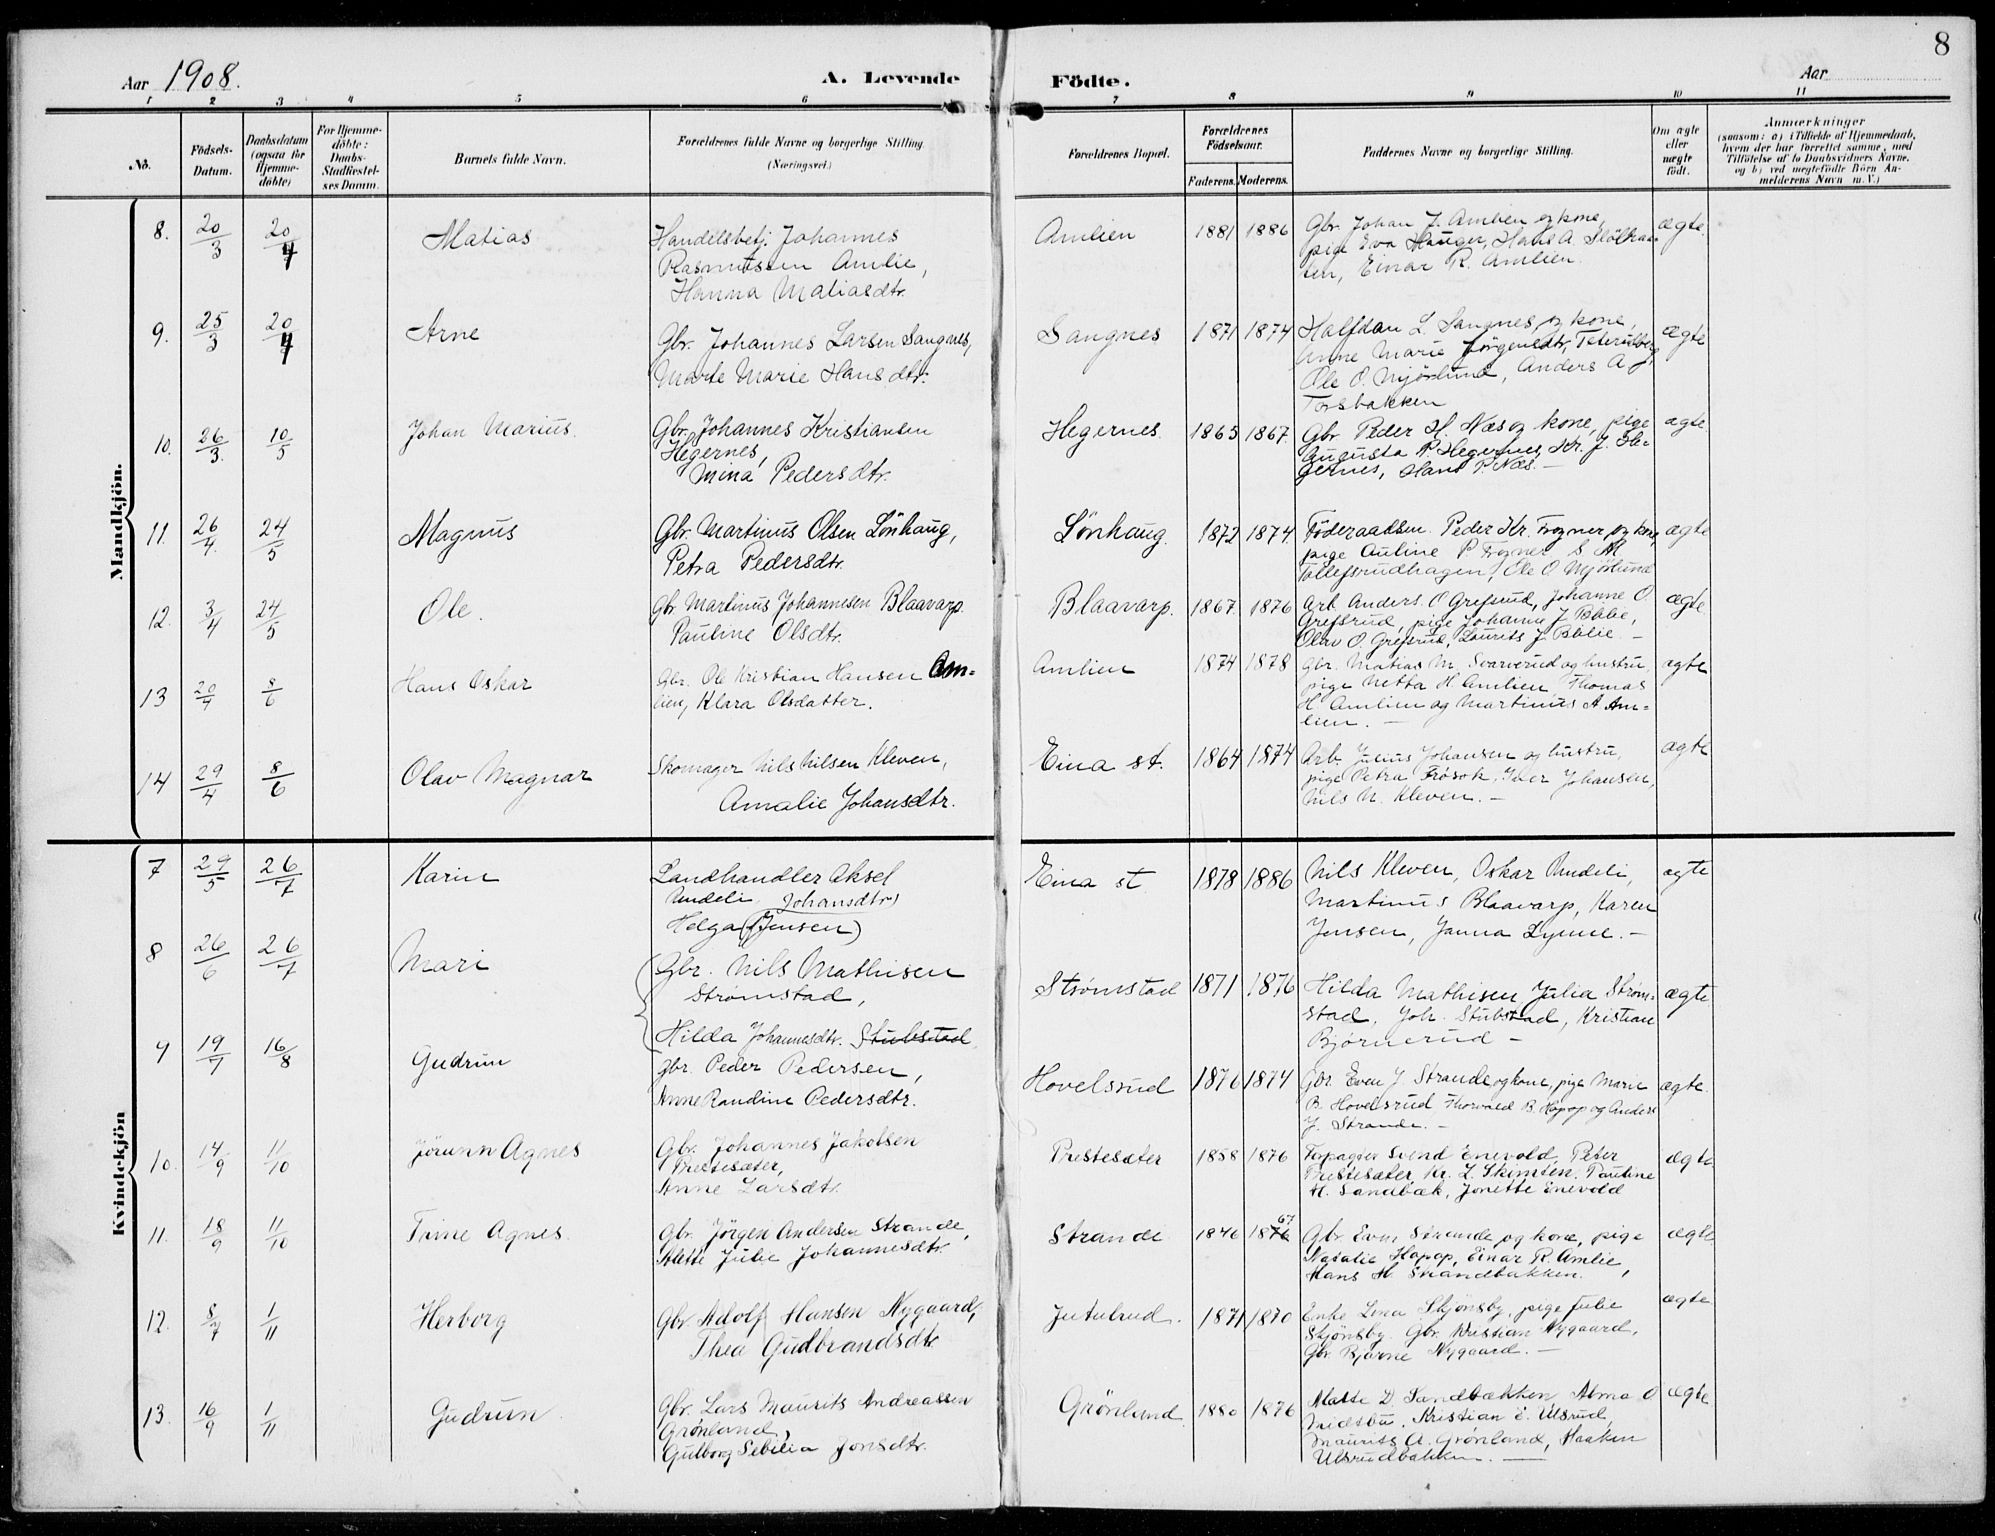 8
Aar 1908.
A. Levende
Födte.
Aar
1 2 3 4 5 6 7 8 9 10 11
No.
Födsels-
Datum.
Daabsdatum
(ogsaa for
Hjemme-
döbte)
For Hjemme-
döbte:
Daabs-
Stadfæstel-
ses Datum.
Barnets fulde Navn.
Forældrenes fulde Navne og borgerlige Stilling
(Næringsvei.)
Forældrenes Bopæl.
Forældrenes
Födselsaar.
Faderens. Moderens.
Faddernes Navne og borgerlige Stilling.
Om ægte
eller
uægte
födt.
Anmærkninger
(saasom: a) i Tilfælde af Hjemmedaab,
hvem der har forrettet samme, med
Tilföielse af to Daabsvidners Navne.
og b) ved uegtefödte Börn An-
melderens Navn m. V.)
Mandkjön.
8. 20/3 20/4 Matias
Handelsbetj. Johannes
Rasmussen Amlie,
Hanna Matiasdtr.
Amlien 1881 1886
Gbr. Johan J. Amlien og kone,
pige Eva Hauger, Hans A.
ten, Einar R. Amlien.
ægte.
9. 25/3 20/4 Arne
Gbr. Johannes Larsen Sangnes,
Marte Marie Hansdtr.
Sangnes 1871 1874
Halfdan L. Sangnes og kone,
Anne Marie Jörgensdtr.
Ole O. Mjörlund, Anders A
Torsbakken
ægte
10. 26/3. 10/5 Johan Marius.
Gbr. Johannes Kristiansen
Hegernes,
Mina Pedersdtr.
Hegernes. 1865 1867.
Gbr. Peder H. Næs og kone, pige
Augusta P. Hegernes, Kr. J. He-
gernes, Hans P. Næs. –
ægte.
11. 26/4. 24/5 Magnus
Gbr. Martinus Olsen Lönhaug,
Petra Pedersdtr.
Lönhaug. 1872 1874.
Föderaadsm. Peder Kr. Frogner og kone,
pige Auline P. Frogner S M
Tollefsrudhagen, Ole O Mjörlund
ægte
12. 3/4 24/5 Ole.
Gbr Martinus Johannesen Blaavarp.
Pauline Olsdtr.
Blaavarp. 1867. 1876
Arb. Anders O Grefsrud, Johanne O.
Grefsrud, pige Johanne J.
Olav O. Grefsrud, Laurits J. –
ægte
13 20/4 8/6 Hans Oskar
Gbr. Ole Kristian Hansen Am=
lien, Klara Olsdatter.
Amlien 1874 1878
Gbr. Matias M. Svarverud og hustru,
pige Netta H. Amlien, Thomas
H. Amlien og Martinus A Am=
lien. –
ægte
14 29/4 8/6 Olav Magnar
Skomager Nils Nilsen Kleven,
Amalie Johansdtr.
Eina st. 1864 1874
Arb. Julius Johansen og hustru,
pige Petra Frösok, Iver Johansen,
Nils N. Kleven. –
ægte
Kvindekjön
7 29/5 26/7 Karin
Landhandler Aksel
Undeli Johansdtr)
Helga (Jensen)
Eina st. 1878 1886
Nils Kleven, Oskar Undeli,
Martinus Blaavarp, Karen
Jensen, Janna Lynne. –
ægte
8 26/6 26/7 Mari
Gbr. Nils Mathisen
Strømstad,
Hilda Johannesdtr. Stubstad
Strømstad 1871 1876
Hilda Mathisen, Julia Strøm=
stad, Joh. Stubstad, Kristian
Bjørnerud –
ægte
9 19/7 16/8 Gudrun
gbr. Peder Pedersen,
Anne Randine Pedersdtr.
Hovelsrud 1876 1874
Gbr. Even J. Strande og kone, pige Marie
B. Hovelsrud Thorvald B. Hapop og Anders
J. Strande. –
ægte.
10. 14/9 11/10 Jörunn Agnes
Gbr. Johannes Jakobsen
Prestesæter,
Anne Larsdtr.
Prestesæter 1858 1876
Forpagter Svend Enevold, Peter
Prestesæter, Kr. L. Skimten, Pauline
H. Sandbæk, Jonette Enevold
ægte.
11. 18/9 11/10 Trine Agnes.
Gbr. Jörgen Andersen Strande,
Alette Julie Johannesdtr.
Strande 1846 1876 67
Gbr. Even Strande og kone, pige
Natalie Hapop, Einar R. Amlie,
Hans M. Strandbakken.
ægte
12. 8/7 1/11 Herborg
Gbr. Adolf Hansen Nygaard,
Thea Gudbrandsdtr.
Jutulrud. 1871 1870
Enke Lina Skjönsby, pige Julie
Skjönsby. Gbr. Kristian Nygaard,
Gbr Bjarne Nygaard. –
ægte
13. 16/9 1/11 Gudrun
Gbr. Lars Maurits Andreassen
Grönland,
Gulborg Sebilia Jonsdtr.
Grönland. 1880 1876
Matte D. Sandbækken, Alma O
Midtsbu, Kristian E. Ulsrud,
Maurits A. Grönland, Haaken
Ulsrudbakken. –
ægte